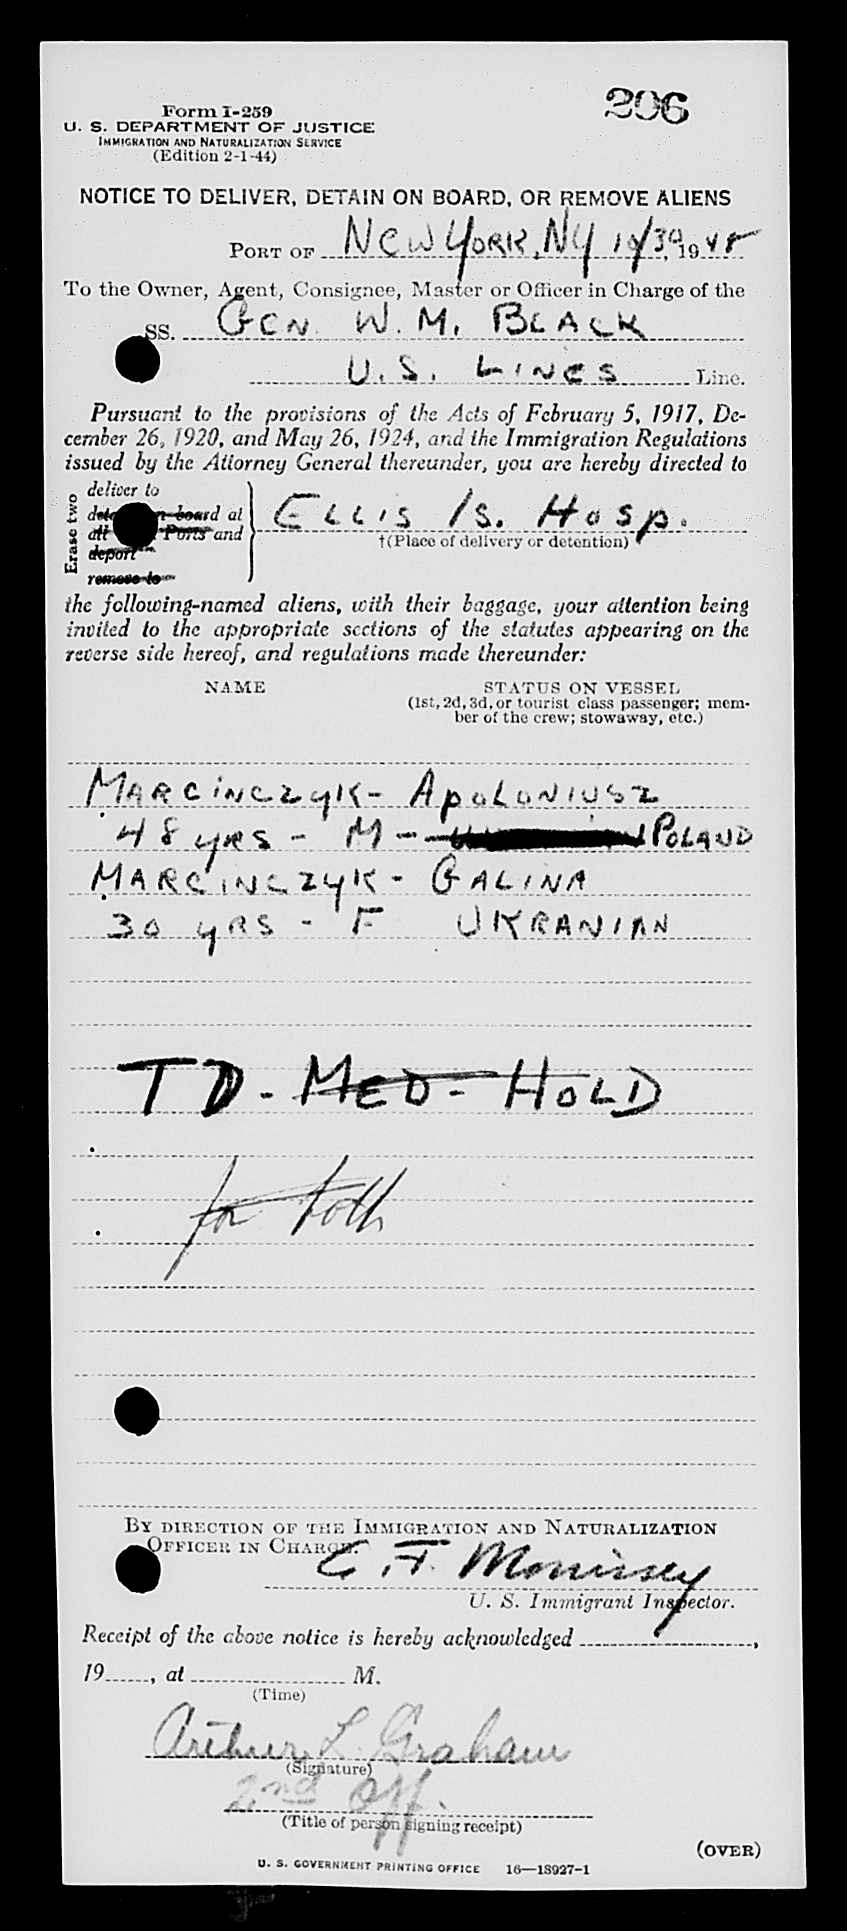 296
Form I-259
U. S. DEPARTMENT OF JUSTICE
IMMIGRATION AND NATURALIZATION SERVICE
(Edition 2-1-44)
NOTICE TO DELIVER, DETAIN ON BOARD, OR REMOVE ALIENS
PORT OF NEW YORK, NY 10/30, 1948
To the Owner, Agent, Consignee, Master or Officer in Charge of the
SS. GEN W. M. BLACK
U. S. LINES Line.
Pursuant to the provisions of the Acts of February 5, 1917, De-
cember 26, 1920, and May 26, 1924, and the Immigration Regulations
issued by the Attorney General thereunder, you are hereby directed to
Erase two
deliver to
board at
all Ports and
deport
remove to
ELLIS IS. HOSP.
†(Place of delivery or detention)
the following-named aliens, with their baggage, your attention being
invited to the appropriate sections of the statutes appearing on the
reverse side hereof, and regulations made thereunder:
NAME STATUS ON VESSEL
(1st, 2d, 3d, or tourist class passenger; mem-
ber of the crew; stowaway, etc.)
MARCINCZYK - APOLONIUSZ
48 YRS - M - POLAND
MARCINCZYK - GALINA
30 YRS - F UKRANIAN
TD - MED - HOLD
for both
BY DIRECTION OF THE IMMIGRATION AND NATURALIZATION
OFFICER IN CHARGE:
C. F. Morrissey
U. S. Immigrant Inspector.
Receipt of the above notice is hereby acknowledged ,
19 , at M.
(Time)
Arthur L. Graham
(Signature)
2nd Off.
(Title of person signing receipt)
(OVER)
U. S. GOVERNMENT PRINTING OFFICE 16—18927-1